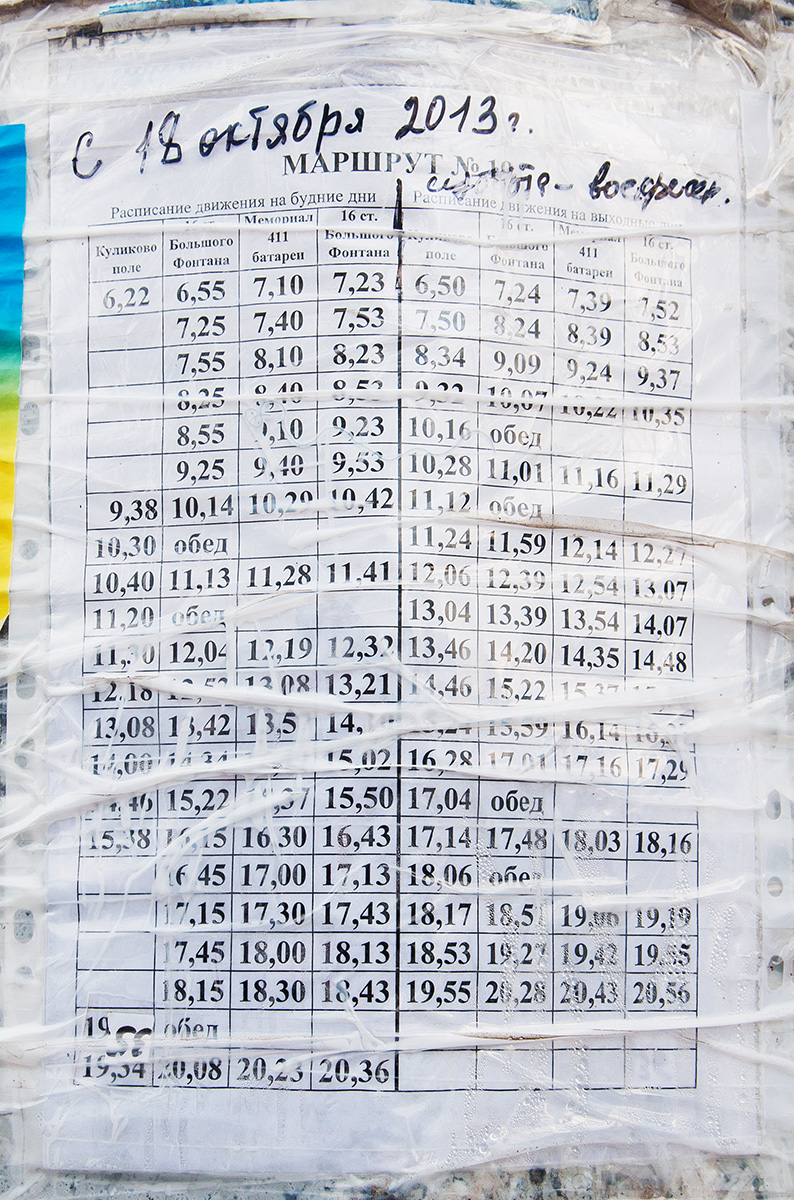 С 18 октября 2013 г.
МАРШРУТ №
суббота - воскресн.
Расписание движения на будние дни Расписание движения на выходные дни
Куликово поле 16 ст. Большого Фонтана Мемориал 411 батареи 16 ст. Большого Фонтана поле 16 ст. Большого Фонтана 411 батареи 16 ст. Большого Фонтана
6,22 6,55 7,10 7,23 6,50 7,24 7,39 7,52
7,25 7,40 7,53 7,50 8,24 8,39 8,53
7,55 8,10 8,23 8,34 9,09 9,24 9,37
8,25 8,40 8,53 9,32 10,07 10,22 10,35
8,55 9,10 9,23 10,16 обед
9,25 9,40 9,53 10,28 11,01 11,16 11,29
9,38 10,14 10,29 10,42 11,12 обед
10,30 обед 11,24 11,59 12,14 12,27
10,40 11,13 11,28 11,41 12,06 12,39 12,54 13,07
11,20 обед 13,04 13,39 13,54 14,07
11,30 12,04 12,19 12,32 13,46 14,20 14,35 14,48
12,18 13,08 13,21 14,46 15,22 15,37
13,08 13,42 15,59 16,14
14,00 15,02 16,28 17,01 17,16 17,29
14,46 15,22 15,37 15,50 17,04 обед
15,38 16,15 16,30 16,43 17,14 17,48 18,03 18,16
16,45 17,00 17,13 18,06 обед
17,15 17,30 17,43 18,17 18,51 19,06 19,19
17,45 18,00 18,13 18,53 19,27 19,42 19,55
18,15 18,30 18,43 19,55 20,28 20,43 20,56
обед
19,34 20,08 20,23 20,36